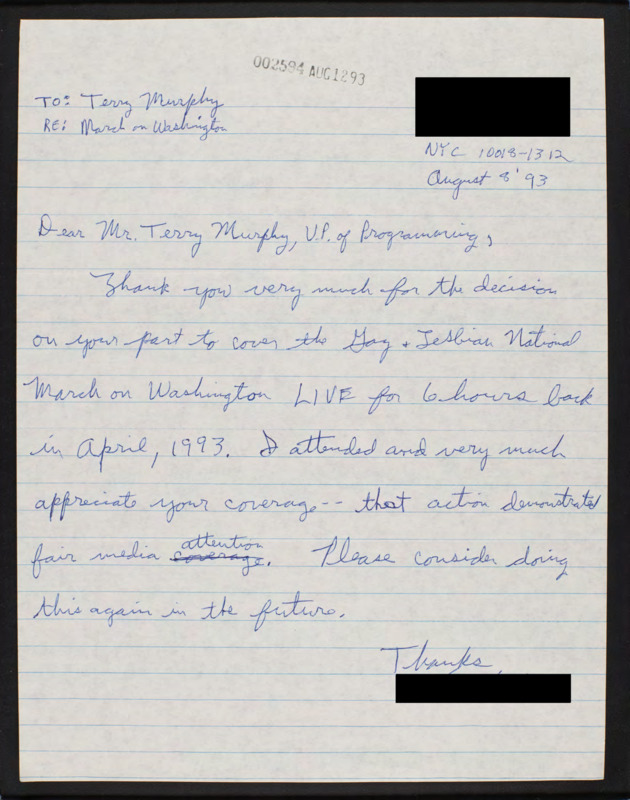 002594 AUG1293
TO: Terry Murphy
RE: March on Washington
NYC 10018-1312
August 8 '93
Dear Mr. Terry Murphy, V.P. of Programming,
Thank you very much for the decision
on your part to cover the Gay + Lesbian National
March on Washington LIVE for 6 hours back
in April, 1993. I attended and very much
appreciate your coverage -- that action demonstrated
fair media coverage attention. Please consider doing
this again in the future.
Thanks,